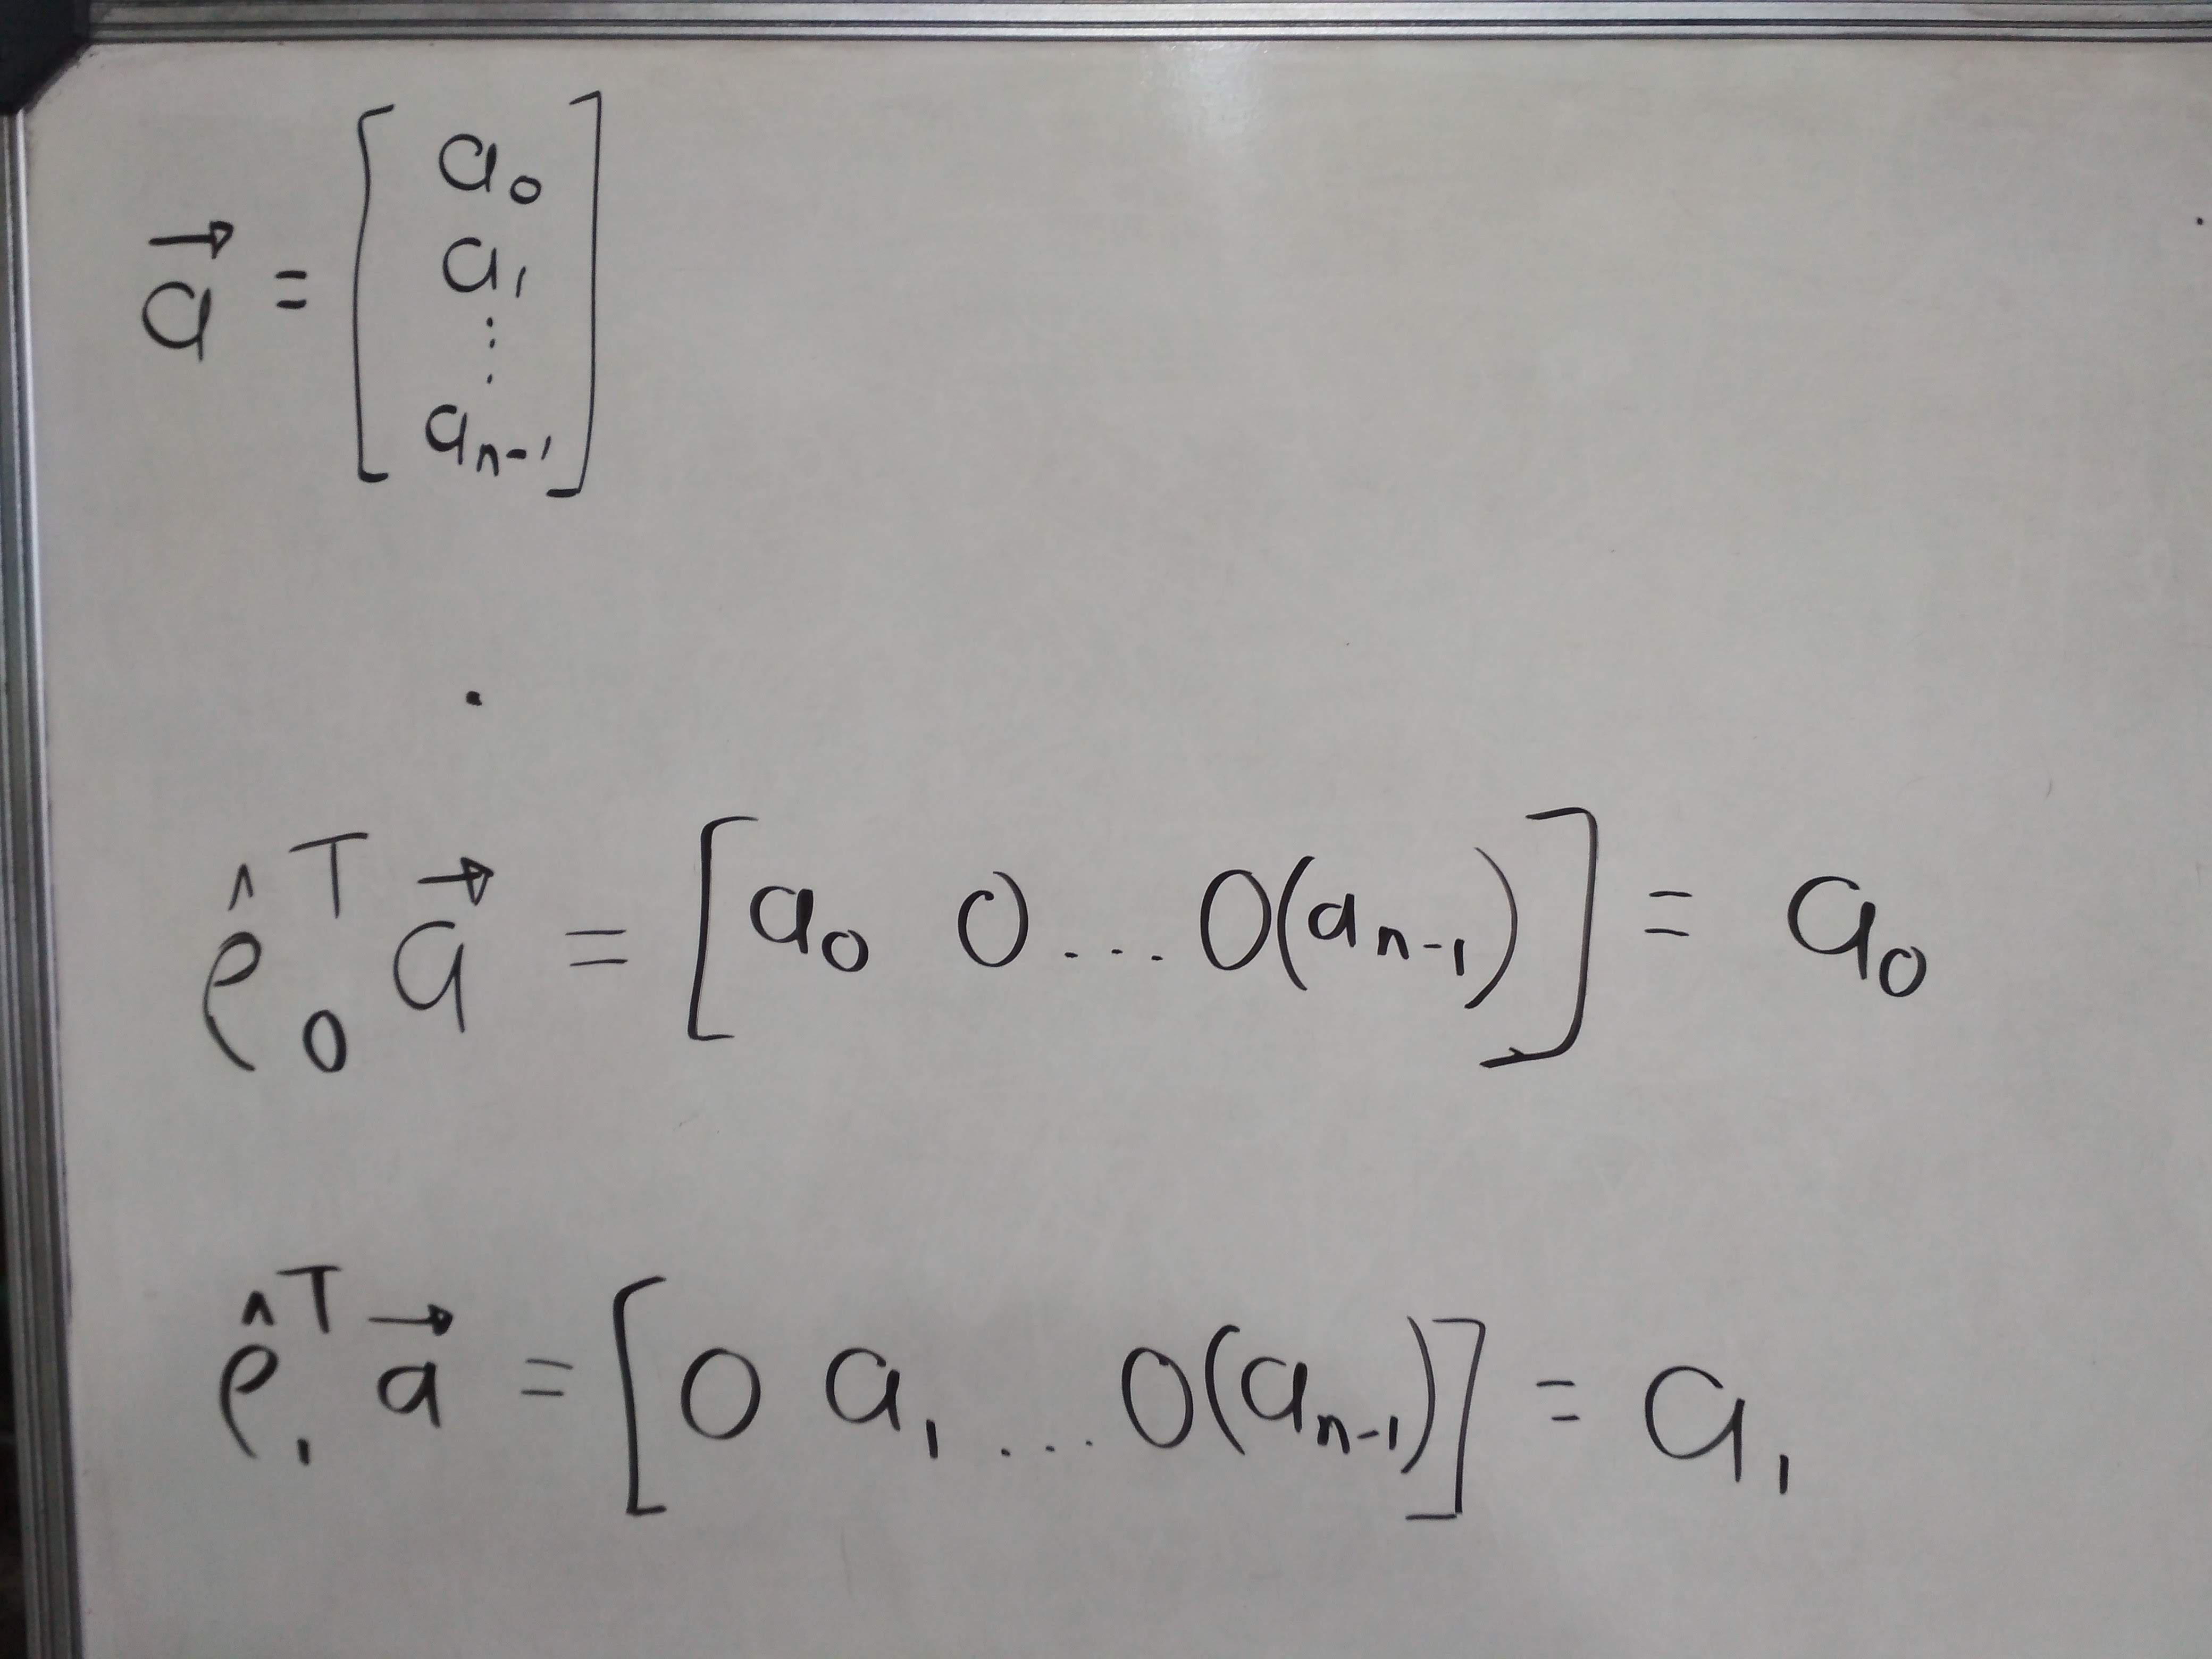 \vec{a} = \begin{bmatrix} a_0 \\ a_1 \\ \vdots \\ a_{n-1} \end{bmatrix}
\hat{e}_0^T \vec{a} = [a_0 \ 0 \ldots 0(a_{n-1})] = a_0
\hat{e}_1^T \vec{a} = [0 \ a_1 \ldots 0(a_{n-1})] = a_1